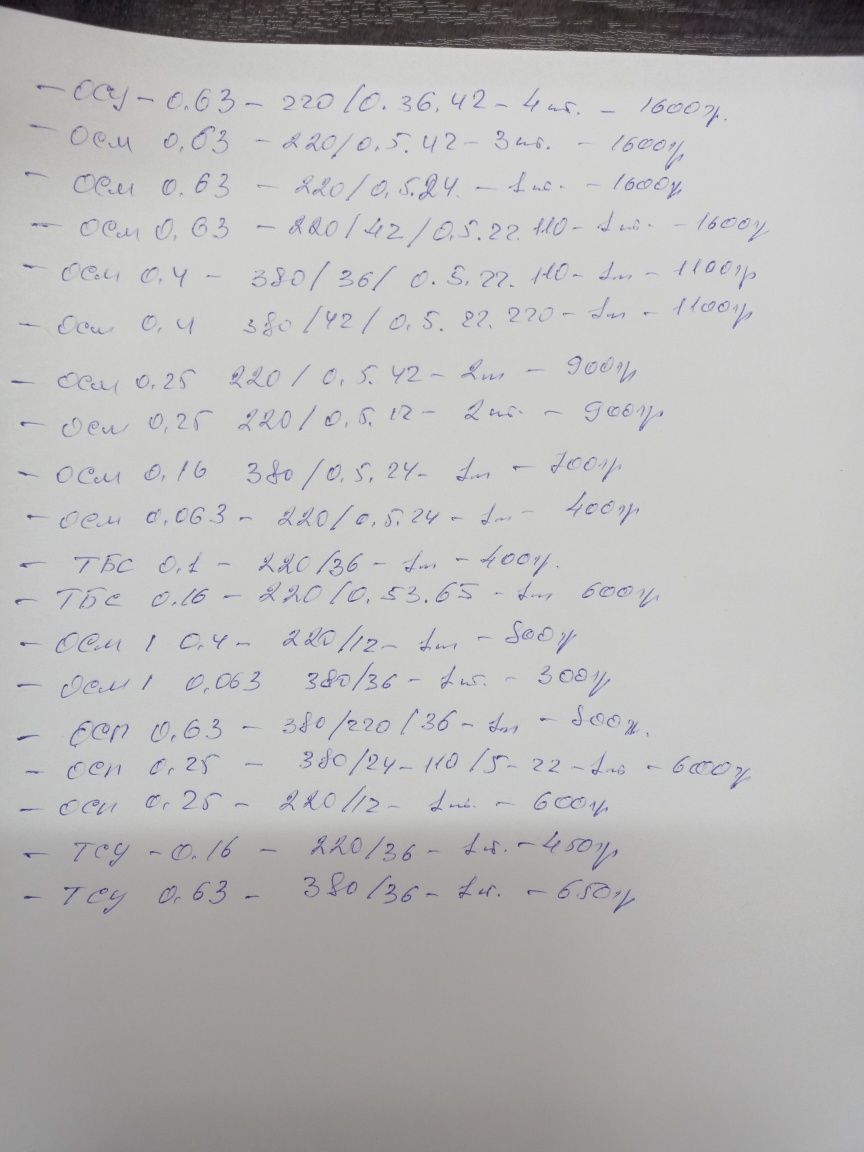 - ОСУ - 0.63 - 220/0.36.42 - 4шт. - 1600р.
- ОСМ 0.63 - 220/0.5.42 - 3шт. - 1600р
- ОСМ 0.63 - 220/0.5.24. - 1шт. - 1600р
- ОСМ 0.63 - 220/42/0.5.22.110 - 1шт. - 1600р
- ОСМ 0.4 - 380/36/0.5.22.110 - 1шт - 1100гр
- ОСМ 0.4 380/42/0.5.22.220 - 1шт - 1100гр
- ОСМ 0.25 220/0.5.42 - 2шт - 900гр
- ОСМ 0.25 220/0.5.12 - 2шт. - 900гр
- ОСМ 0.16 380/0.5.24 - 1шт - 700гр
- ОСМ 0.063 - 220/0.5.24 - 1шт - 400гр
- ТБС 0.1 - 220/36 - 1шт - 400р.
- ТБС 0.16 - 220/0.53.65 - 1шт 600гр
- ОСМ 1 0.4 - 220/12 - 1шт - 800р
- ОСМ 1 0.063 380/36 - 1шт. - 300р
- ОСП 0.63 - 380/220/36 - 1шт - 800р.
- ОСП 0.25 - 380/24-110/5-22 - 1шт - 600р
- ОСП 0.25 - 220/12 - 1шт. - 600р
- ТСУ - 0.16 - 220/36 - 1шт. - 450гр
- ТСУ 0.63 - 380/36 - 1шт. - 650гр